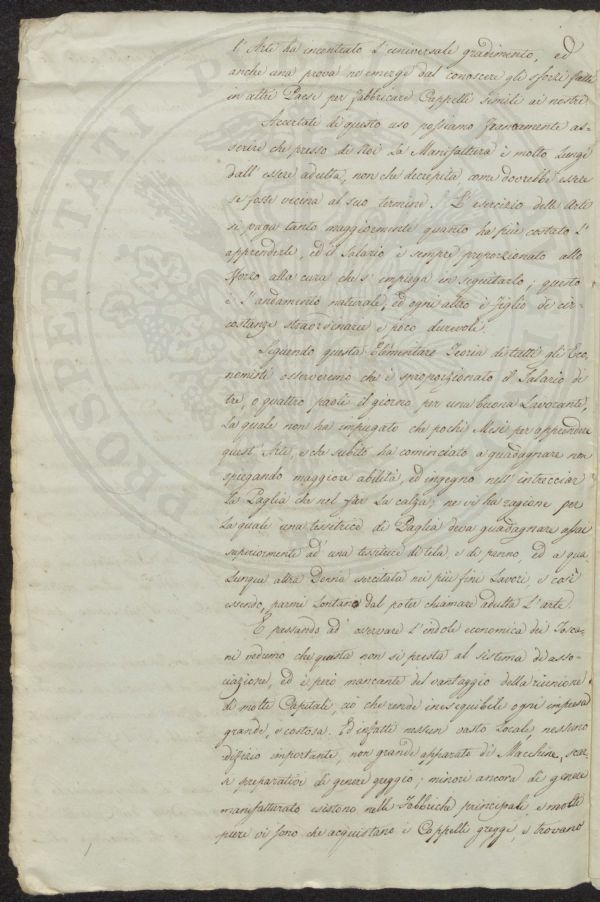 l'Arte ha incontrato l'universale gradimento, ed
anche una prova ne emerge dal conoscere gli sforzi fatti
in altri Paesi per fabbricare Cappelli simili ai nostri.
Accertati di questo uso possiamo francamente as-
serire che presso di Noi la Manifattura è molto lungi
dall'essere adulta, non che decrepita come dovrebbe essere
se fosse vicina al suo termine. L'esercizio delle Arti
si paga tanto maggiormente quanto ha più costato l'
apprenderle, ed il Salario è sempre proporzionato allo
sforzo alla cura che s'impiega in seguitarlo; questo
è l'andamento naturale, ed ogni altro è figlio di cir-
costanze straordinarie e poco durevoli.
Seguendo questa Elementare Teoria di tutti gli Eco-
nomisti osserveremo che è sproporzionato il Salario di
tre, o quattro paoli il giorno per una buona Lavorante,
la quale non ha impiegato che pochi Mesi per apprendere
quest'Arte, e che subito ha cominciato a guadagnare non
spiegando maggiore abilità, ed ingegno nell'intrecciar
la Paglia che nel far la calza; ne vi ha ragione per
la quale una tessitrice di Paglia deva guadagnare assai
superiormente ad una tessitrice di tela, e di panno, ed a qua-
lunque altra Donna esercitata nei più fini Lavori, e così
essendo, parmi lontano dal poter chiamare adulta l'arte.
E passando ad osservare l'indole economica dei Tosca-
ni vedremo che questa non si presta al sistema di asso-
ciazione, ed è però mancante del vantaggio della riunione
di molti Capitali, ciò che rende ineseguibile ogni impresa
grande, e costosa. Ed infatti nessun vasto Locale, nessuno
edifizio importante, non grande apparato di Macchine,
preparativi di genere greggio, minori ancora di genere
manifatturato esistono nelle Fabbriche principali, e molti
pure vi sono che acquistano i Cappelli greggi, e trovano
PROSPERITATI